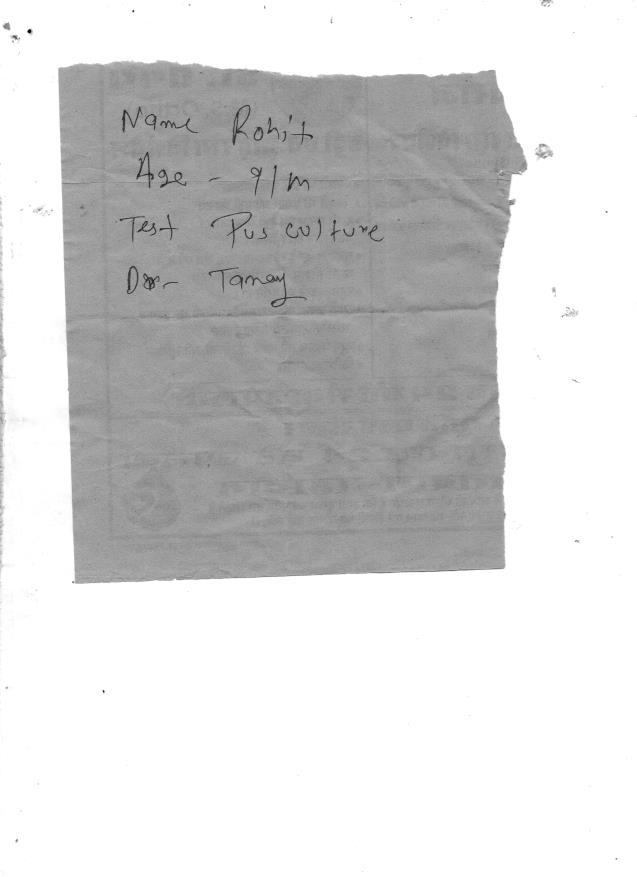 Name Rohit
Age - 9/m
Test Pus culture
Dr- Tanay